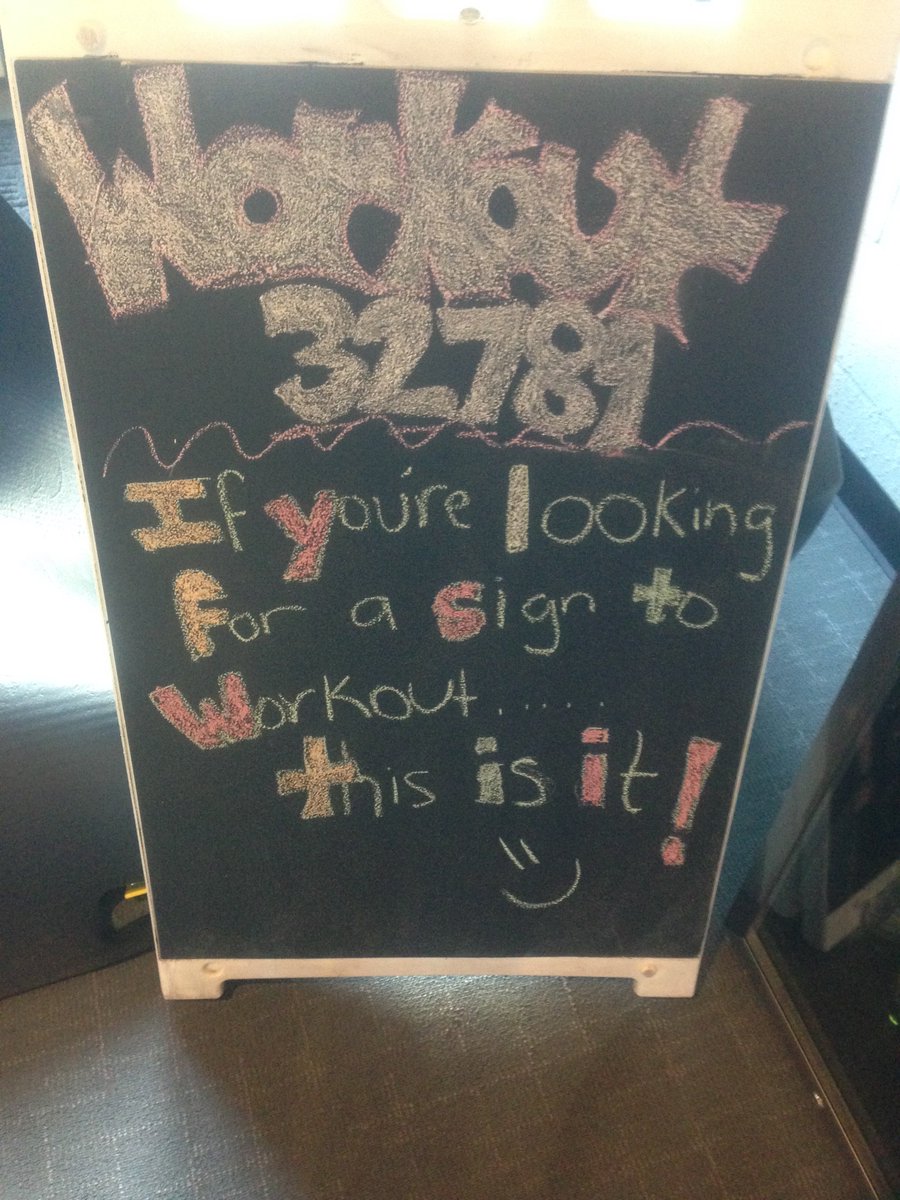 Workout
32789
If you're looking
for a sign to
Workout......
this is it!